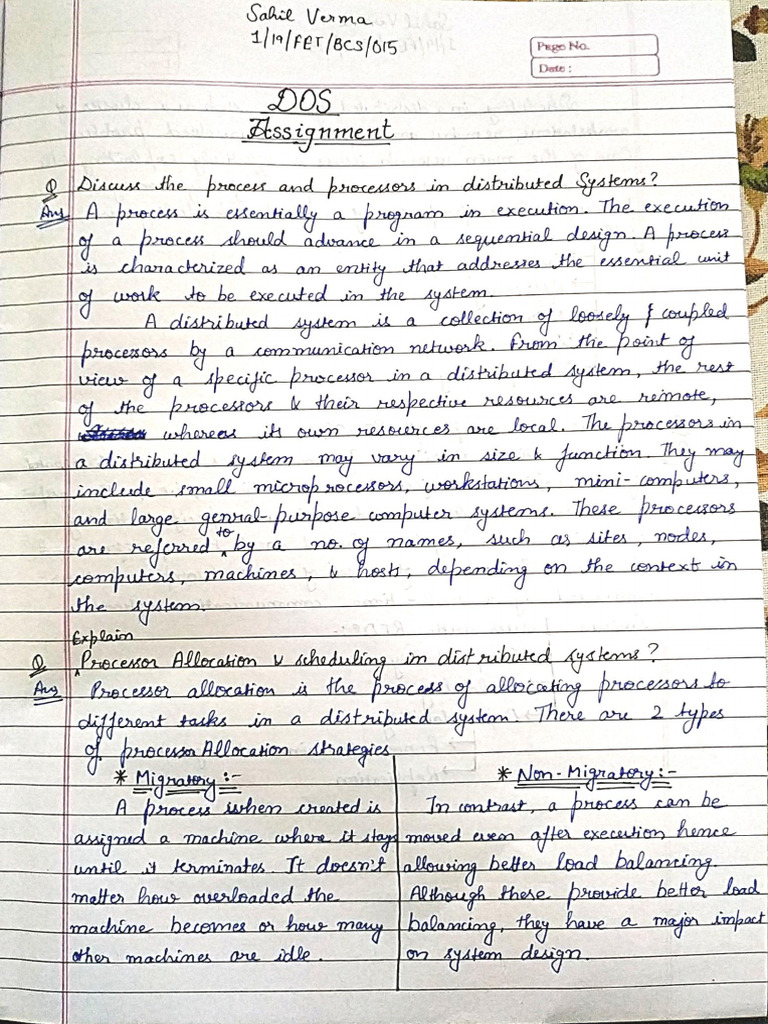 Sahil Verma
1/19/FET/BCS/015
Page No.
Date:
DOS
Assignment
Q Discuss the process and processors in distributed Systems?
Ans A process is essentially a program in execution. The execution
of a process should advance in a sequential design. A process
is characterized as an entity that addresses the essential unit
of work to be executed in the system.
A distributed system is a collection of loosely & coupled
processors by a communication network. From the point of
view of a specific processor in a distributed system, the rest
of the processors & their respective resources are remote,
whereas its own resources are local. The processors in
a distributed system may vary in size & function. They may
include small microprocessors, workstations, mini-computers,
and large genral-purpose computer systems. These processors
are referred to by a no. of names, such as sites, nodes,
computers, machines, & hosts, depending on the context in
the system.
Explain
Q Processor Allocation & scheduling in distributed systems?
Ans Processor allocation is the process of allocating processors to
different tasks in a distributed system. There are 2 types
of processor Allocation strategies
* Migratory :-
A process when created is
assigned a machine where it stays
until it terminates. It doesn't
matter how overloaded the
machine becomes or how many
other machines are idle.
* Non-Migratory :-
In contrast, a process can be
moved even after execution hence
allowing better load balancing.
Although these provide better load
balancing, they have a major impact
on system design.